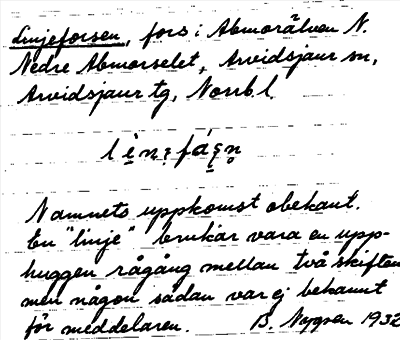 Linjeforsen, fors i Abmorälven N.
Nedre Abmorselet, Arvidsjaur sn,
Arvidsjaur tg, Norrb. l.
Namnets uppkomst obekant.
En "linje" brukar vara en upp-
huggen rågång mellan två skiften
men någon sådan var ej bekannt
för meddelaren. B. Nygren 1932